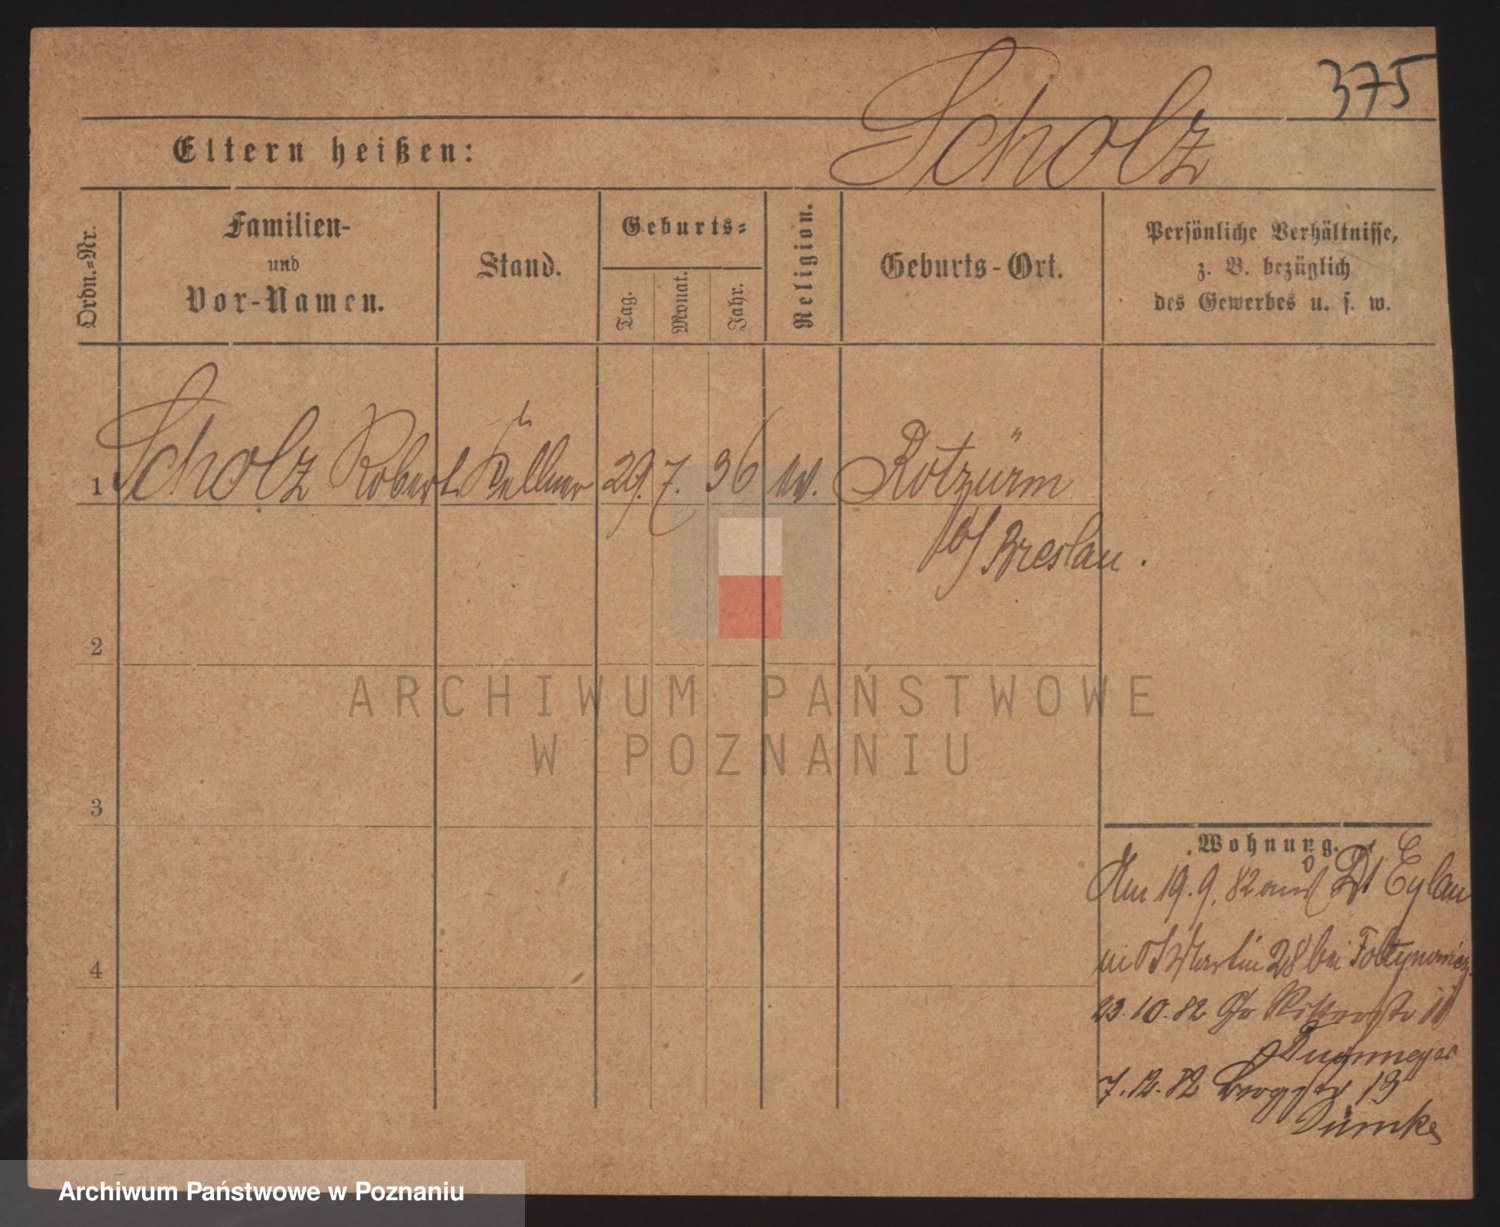 375
Scholz
Eltern heißen:
Ordn.-Nr.
Familien-
und
Vor-Namen.
Stand.
Geburts-
Tag.
Monat.
Jahr.
Religion.
Geburts-Ort.
Persönliche Verhältnisse,
z. B. bezüglich
des Gewerbes u. s. w.
1 Scholz Robert Kellner 29. 7. 36 Rotzürm
b/ Breslau.
2
3
4
Wohnung.
Am 19. 9. 82 aus Dt Eylau
St Martin 28 bei Foltynowicz
23. 10. 82 Gr Ritterstr 11
7. 12. 82 Bergstr 13
Dümke
ARCHIWUM PAŃSTWOWE
W POZNANIU
Archiwum Państwowe w Poznaniu